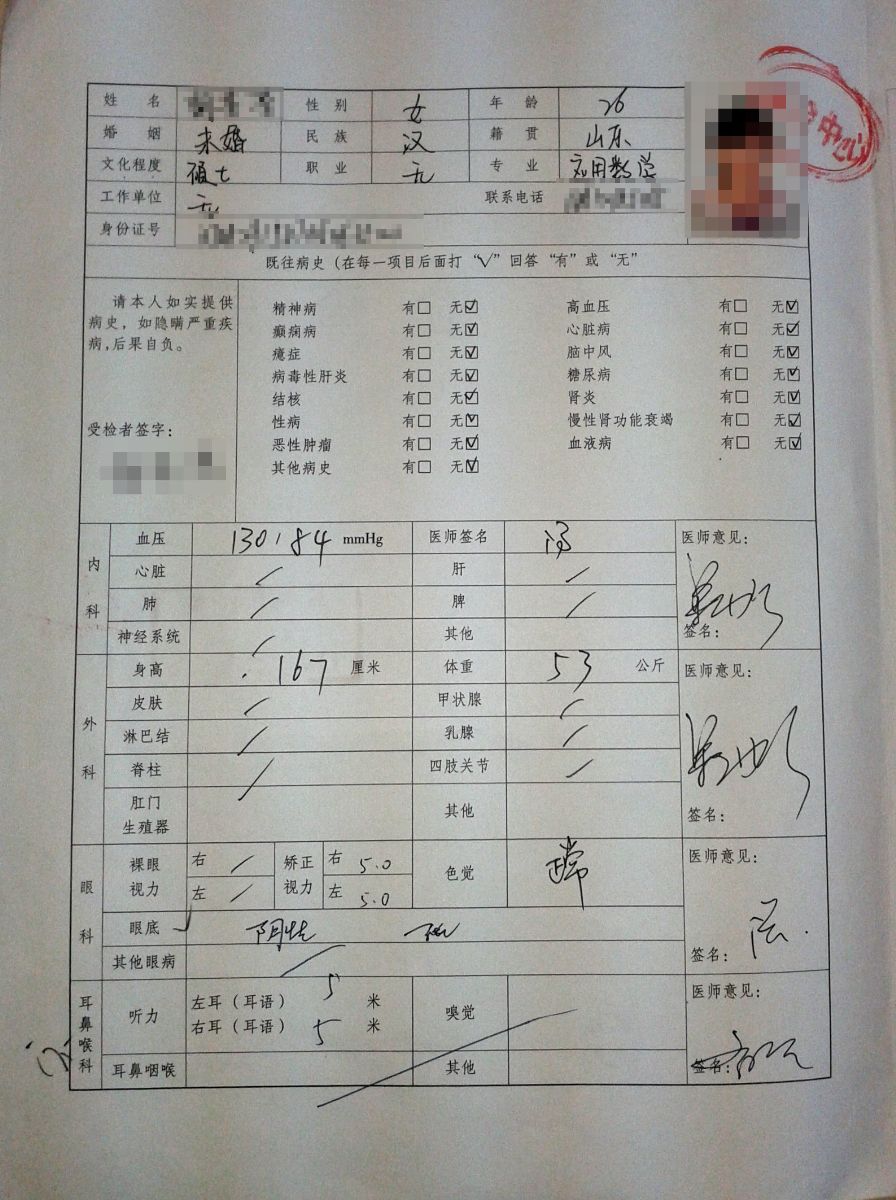 中心
姓 名 性 别 女 年 龄 26
婚 姻 未婚 民 族 汉 籍 贯 山东
文化程度 硕士 职 业 无 专 业 应用数学
工作单位 无 联系电话
身份证号
既往病史（在每一项目后面打“√”回答“有”或“无”
请本人如实提供
病史，如隐瞒严重疾
病，后果自负。
受检者签字：
精神病 有□ 无☑ 高血压 有□ 无☑
癫痫病 有□ 无☑ 心脏病 有□ 无☑
癔症 有□ 无☑ 脑中风 有□ 无☑
病毒性肝炎 有□ 无☑ 糖尿病 有□ 无☑
结核 有□ 无☑ 肾炎 有□ 无☑
性病 有□ 无☑ 慢性肾功能衰竭 有□ 无☑
恶性肿瘤 有□ 无☑ 血液病 有□ 无☑
其他病史 有□ 无☑
内科
血压 130/84 mmHg 医师签名 医师意见：
心脏 / 肝 /
肺 / 脾 /
神经系统 / 其他 签名：
外科
身高 167 厘米 体重 53 公斤 医师意见：
皮肤 / 甲状腺 /
淋巴结 / 乳腺 /
脊柱 / 四肢关节 /
肛门
生殖器 其他 签名：
眼科
裸眼视力 右 / 左 / 矫正视力 右 5.0 左 5.0 色觉 正常 医师意见：
眼底 阴性
其他眼病 / 签名：
耳鼻喉科
听力 左耳（耳语） 5 米 嗅觉 医师意见：
右耳（耳语） 5 米
耳鼻咽喉 其他 签名：